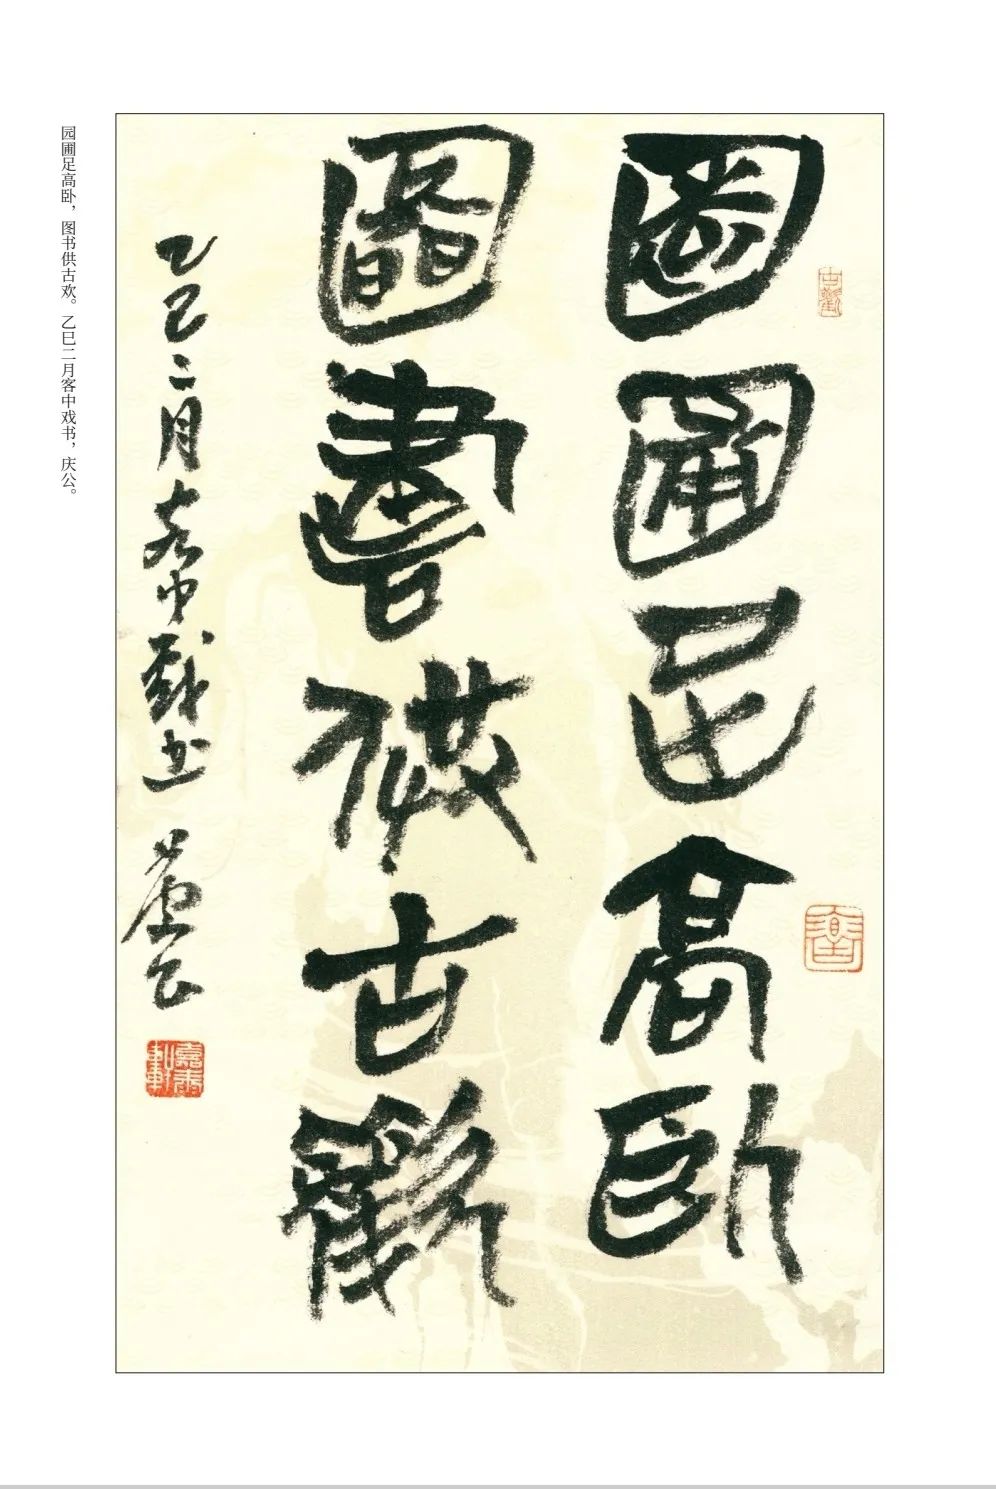 園圃足高臥
圖書供古歡
乙巳二月客中戲书 慶公
古歡
嘉樹軒
园圃足高卧，图书供古欢。乙巳二月客中戏书，庆公。